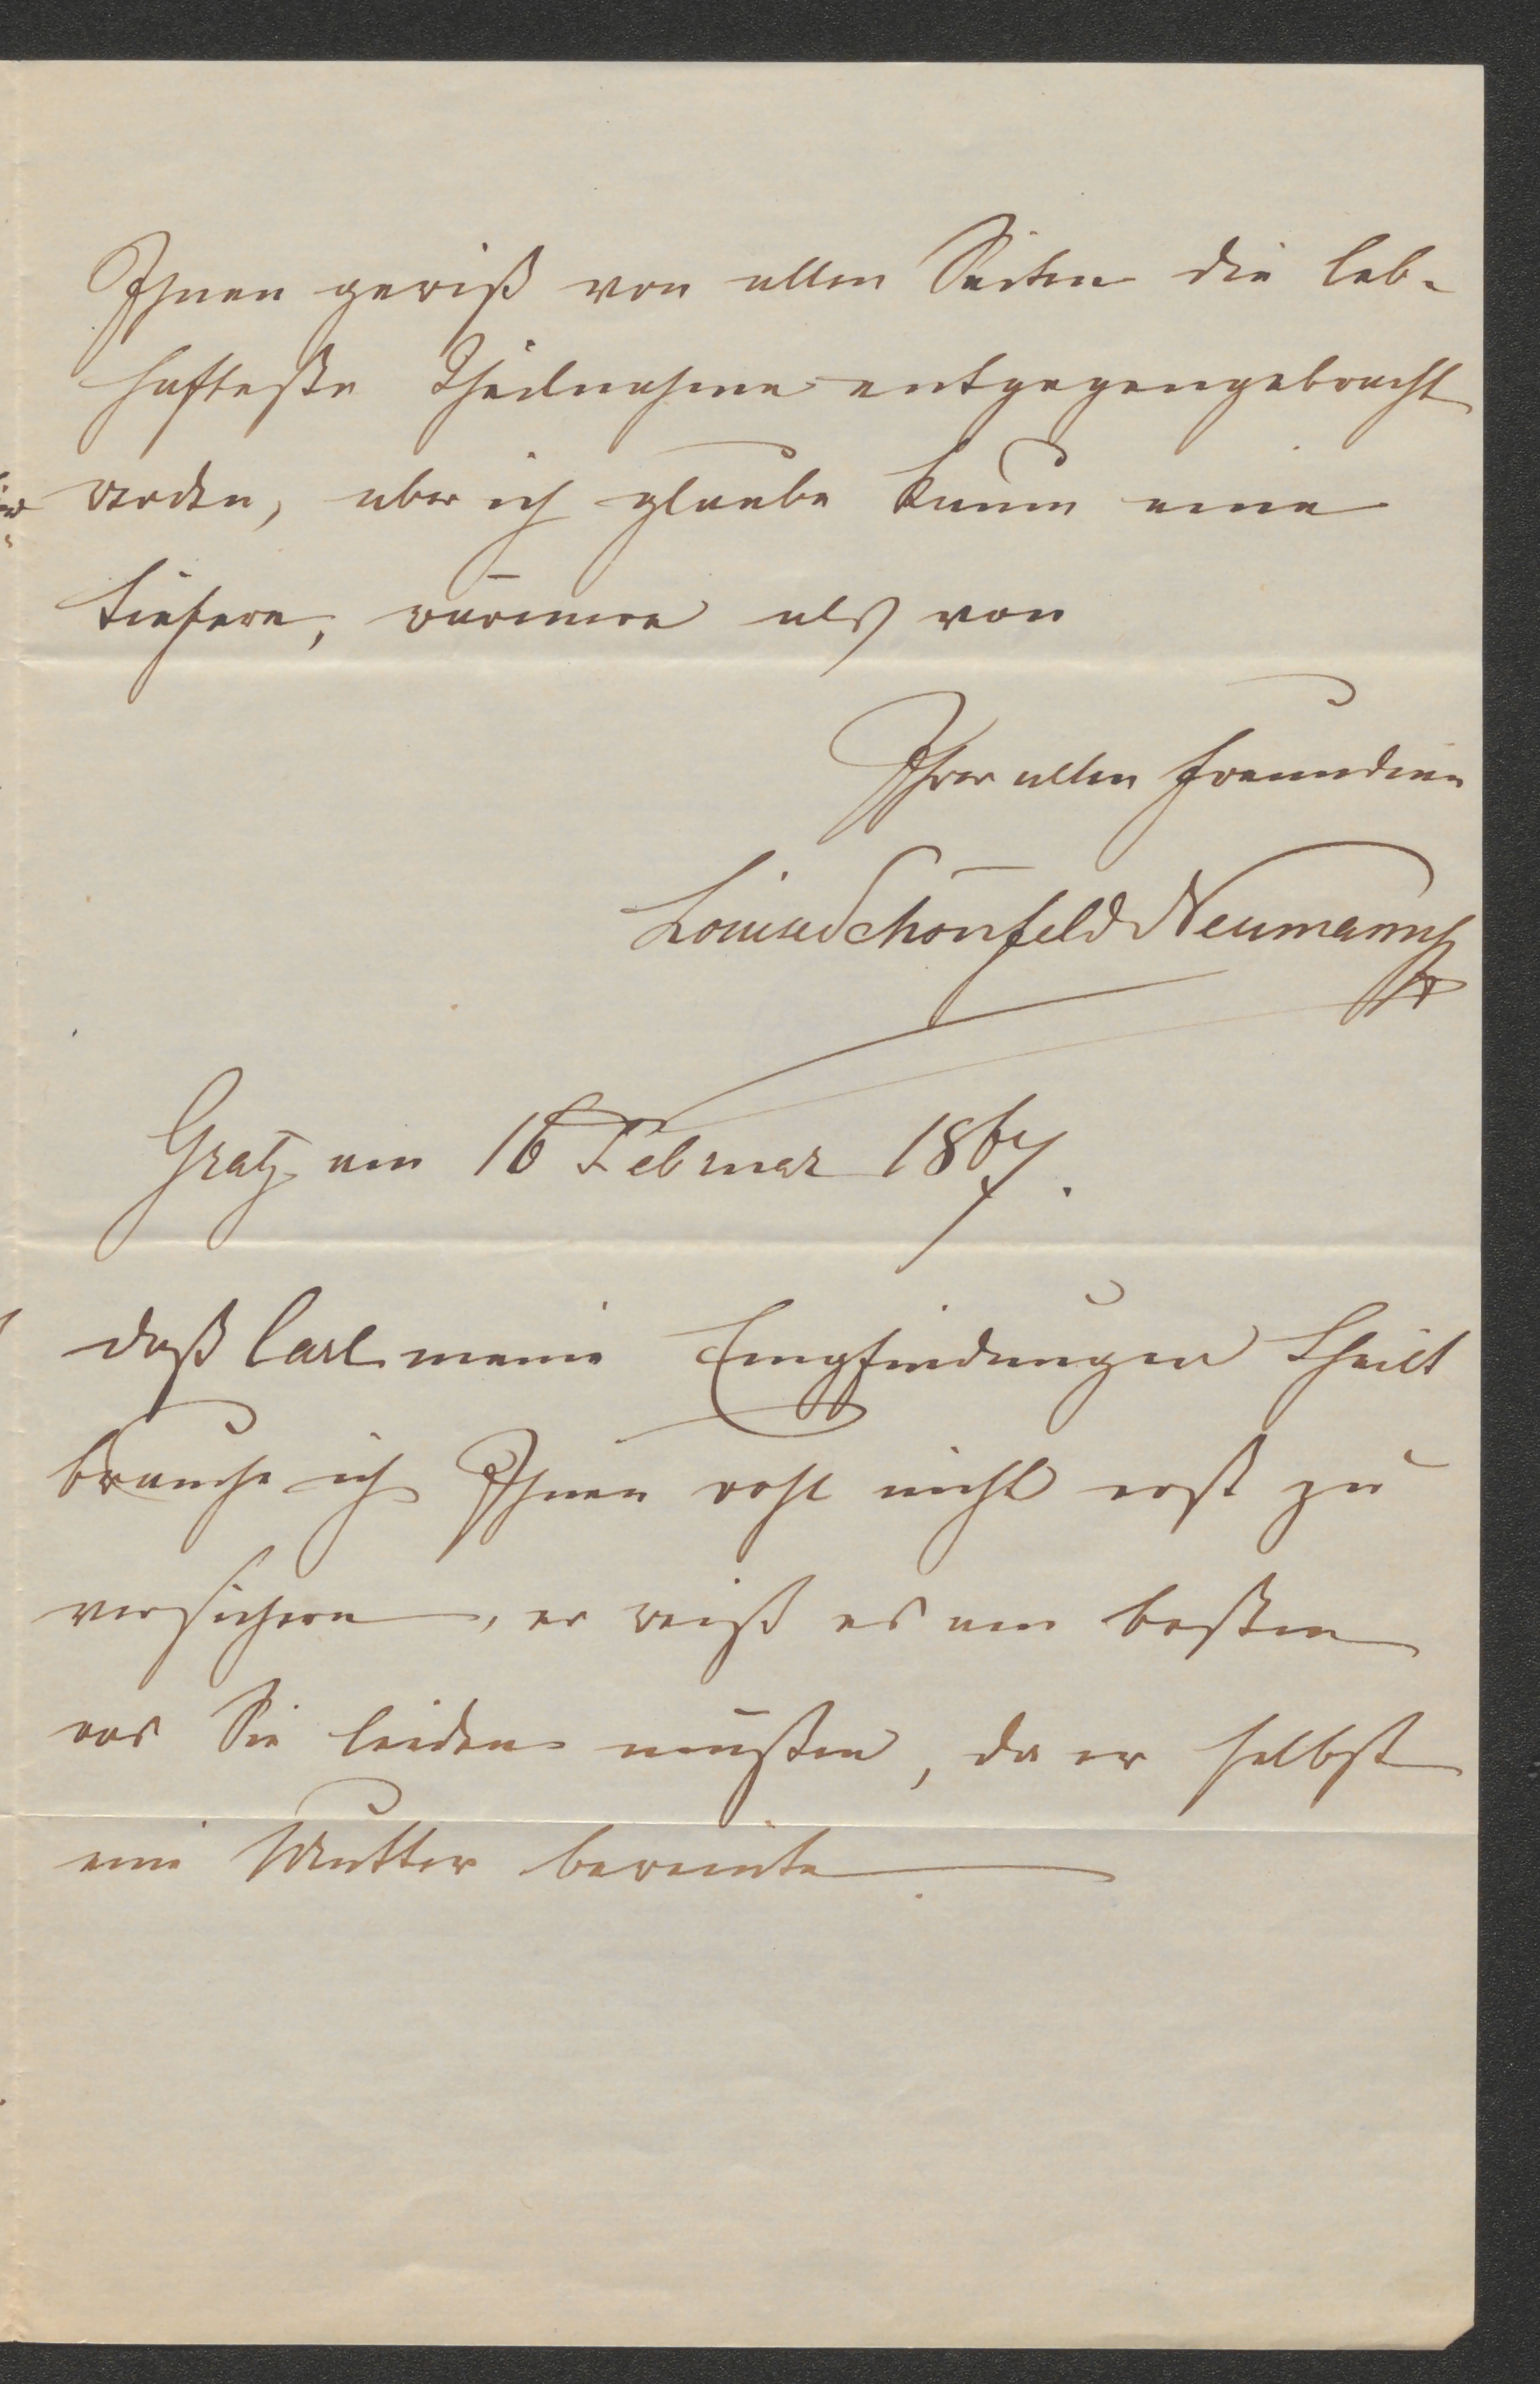 Ihnen gewiß von allen Seiten die leb-
hafteste Theilnahme entgegengebracht
werden, aber ich glaube kaum eine
tiefere, wärmere als von
Ihrer alten Freundinn
Louise Schönfeld Neumann
Gratz am 16 Februar 1867.
daß Carl meine Empfindungen theilt
brauche ich Ihnen wohl nicht erst zu
versichern, er weiß es am besten
was Sie leiden mußten, da er selbst
eine Mutter beweinte